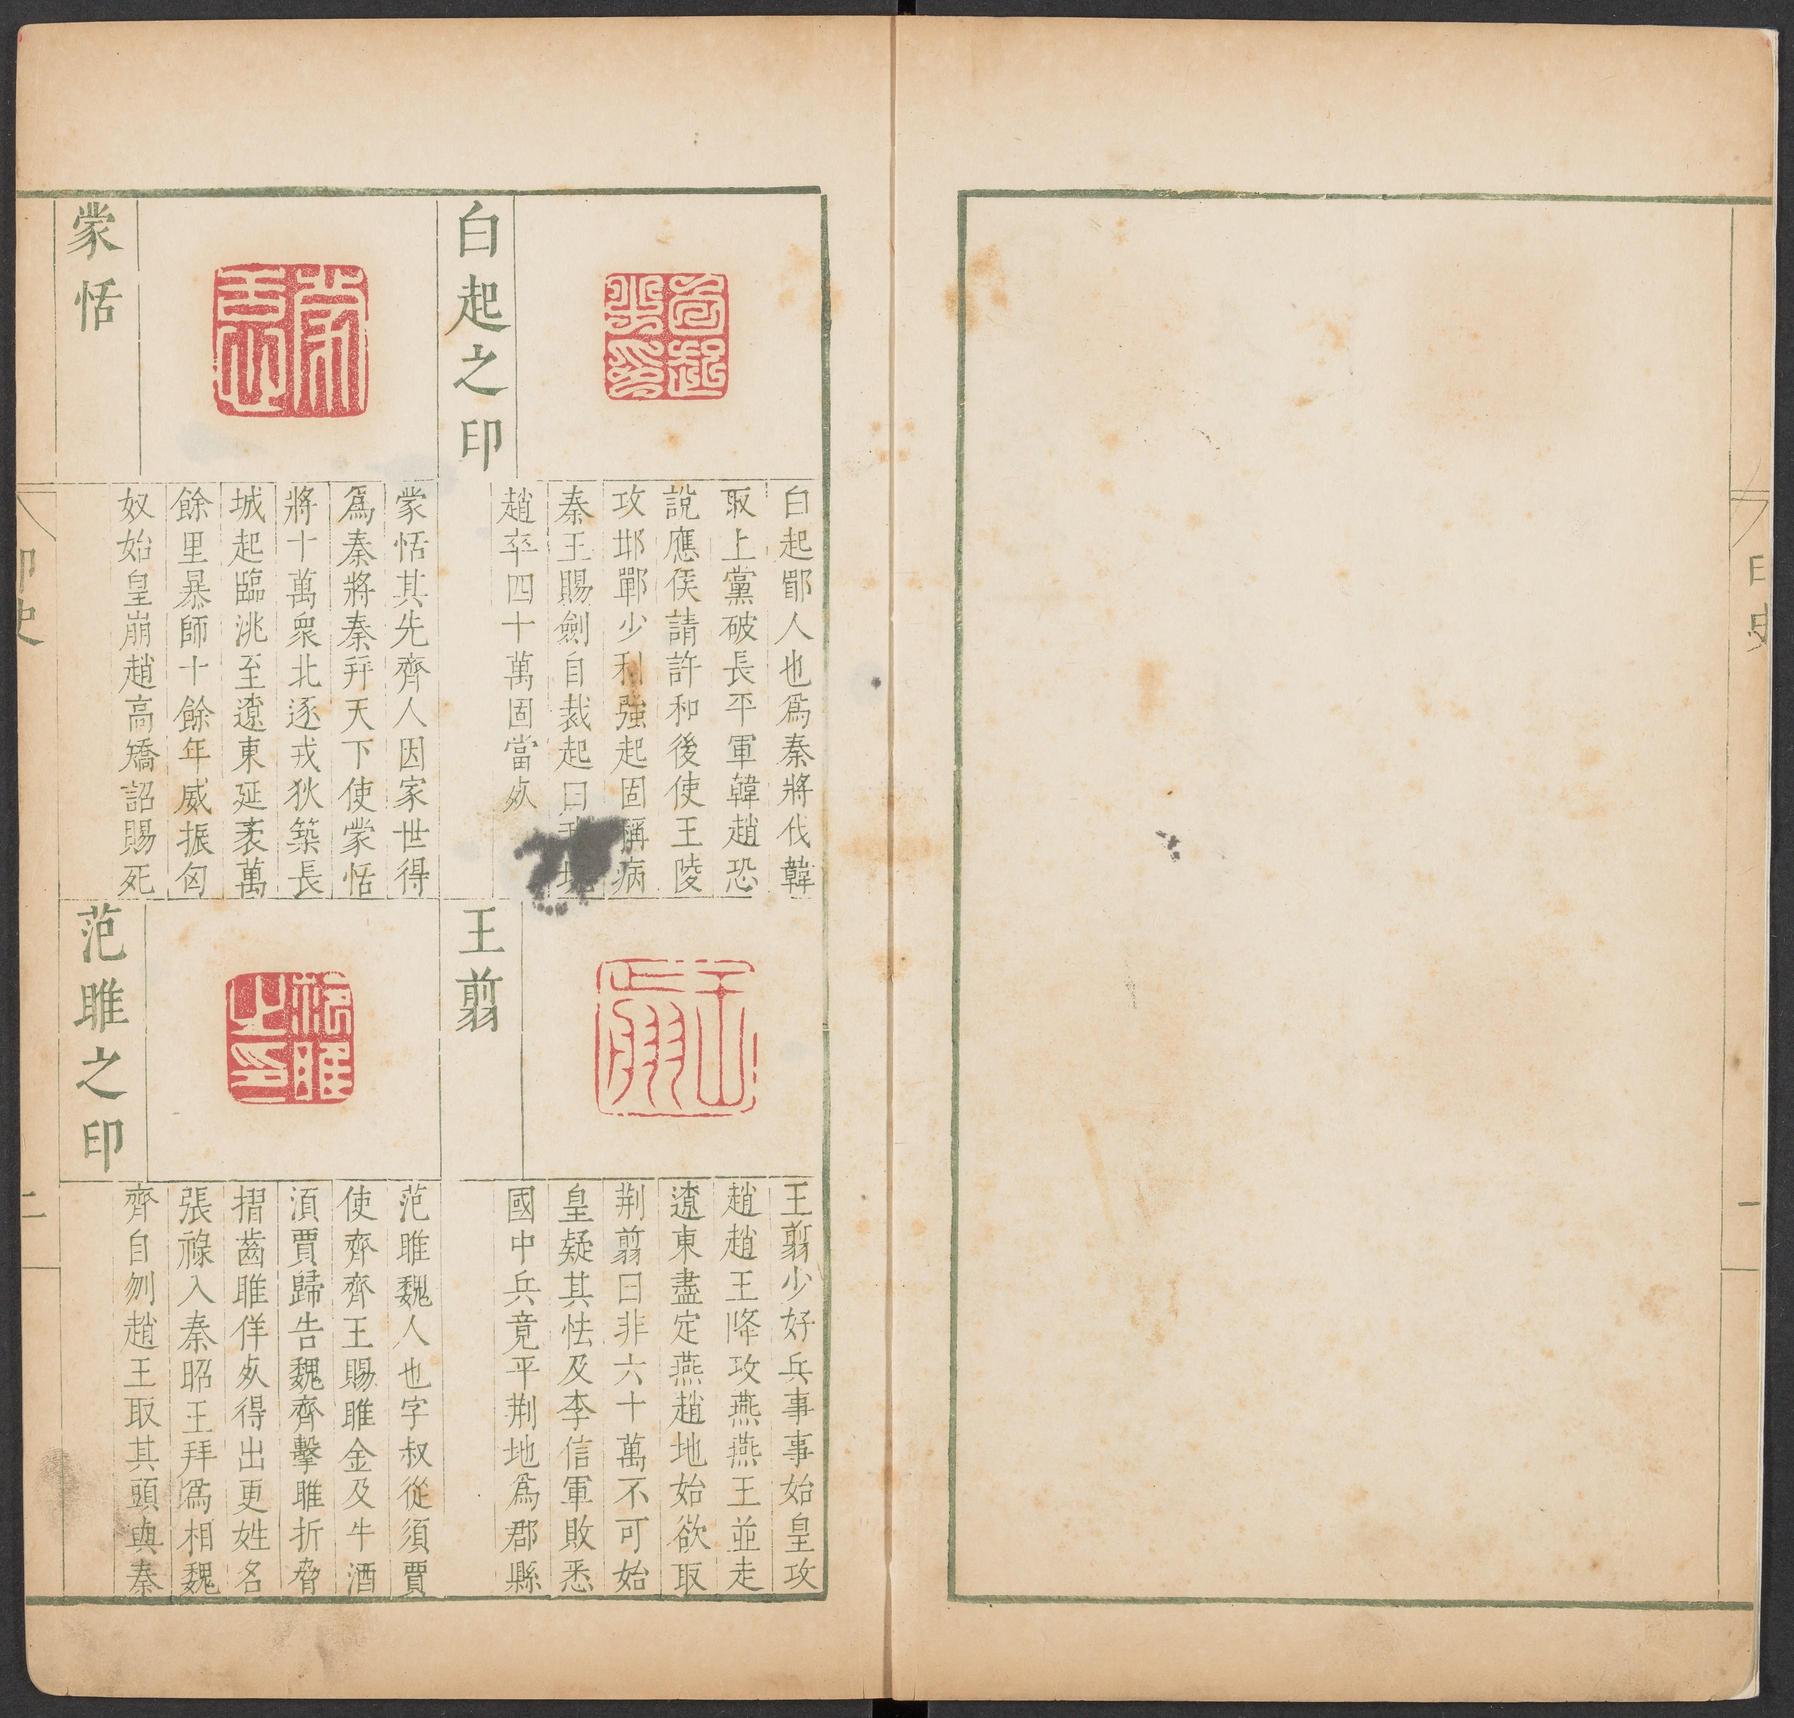 印史
一
白起之印
白起郿人也爲秦將伐韓
取上黨破長平軍韓趙恐
說應侯請許和後使王陵
攻邯鄲少利強起固稱病
秦王賜劍自裁起曰我坑
趙卒四十萬固當死
王翦
王翦少好兵事事始皇攻
趙趙王降攻燕燕王並走
遼東盡定燕趙地始欲取
荆翦曰非六十萬不可始
皇疑其怯及李信軍敗悉
國中兵竟平荆地爲郡縣
蒙恬
蒙恬其先齊人因家世得
爲秦將秦并天下使蒙恬
將十萬衆北逐戎狄築長
城起臨洮至遼東延袤萬
餘里暴師十餘年威振匈
奴始皇崩趙高矯詔賜死
范雎之印
范雎魏人也字叔從須賈
使齊齊王賜雎金及牛酒
湏賈歸告魏齊擊雎折脅
摺齒雎佯死得出更姓名
張祿入秦昭王拜爲相魏
齊自刎趙王取其頭與秦
印史
二